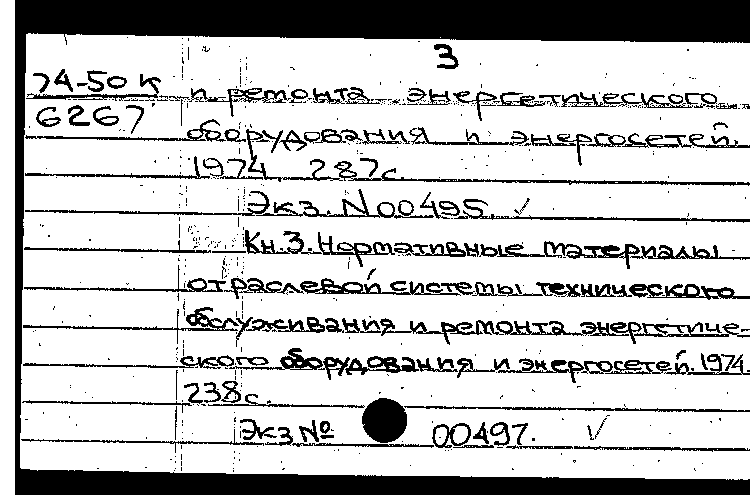 3
74-50 к
6267
и ремонта энергетического
оборудования и энергосетей.
1974 287с.
Экз. N00495. ✓
Кн.3. Нормативные материалы
отраслевой системы технического
обслуживания и ремонта энергетиче-
ского оборудования и энергосетей. 1974.
238с.
Экз № 00497. ✓